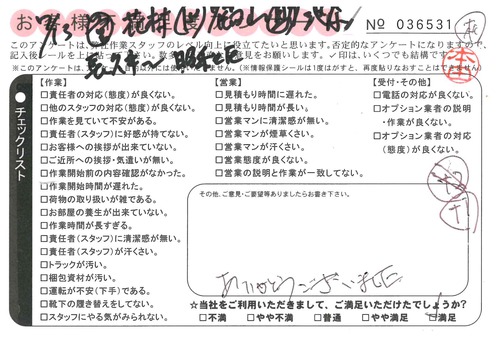 お客様
No 036531
このアンケートは、弊社作業スタッフのレベル向上に役立てたいと思います。否定的なアンケートになりますので、
記入後レールを上
ご意見をお願いします。✓印は、いくつでも結構です。
※このアンケートは、
ません。(※情報保護シールは1度はがすと、再度貼りなおすことはできません)
チェックリスト
【作業】
□責任者の対応(態度)が良くない。
□他のスタッフの対応(態度)が良くない。
□作業を見ていて不安がある。
□責任者(スタッフ)に好感が持てない。
□お客様への挨拶が出来ていない。
□ご近所への挨拶・気遣いが無い。
□作業開始前の内容確認がなかった。
□作業開始時間が遅れた。
□荷物の取り扱いが雑である。
□お部屋の養生が出来ていない。
□作業時間が長すぎる。
□責任者(スタッフ)に清潔感が無い。
□責任者(スタッフ)が汗くさい。
□トラックが汚い。
□梱包資材が汚い。
□運転が不安(下手)である。
□靴下の履き替えをしてない。
□スタッフにやる気がみられない。
【営業】
□見積もり時間に遅れた。
□見積もり時間が長い。
□営業マンに清潔感が無い。
□営業マンが煙草くさい。
□営業マンが汗くさい。
□営業態度が良くない。
□営業の説明と作業が一致してない。
【受付・その他】
□電話の対応が良くない。
□オプション業者の説明
・作業が良くない。
□オプション業者の対応
(態度)が良くない。
その他、ご意見・ご要望等ありましたらお書き下さい。
ありがとうございました
☆当社をご利用いただきまして、ご満足いただけたでしょうか?
□不満 □やや不満 □普通 □やや満足 □満足